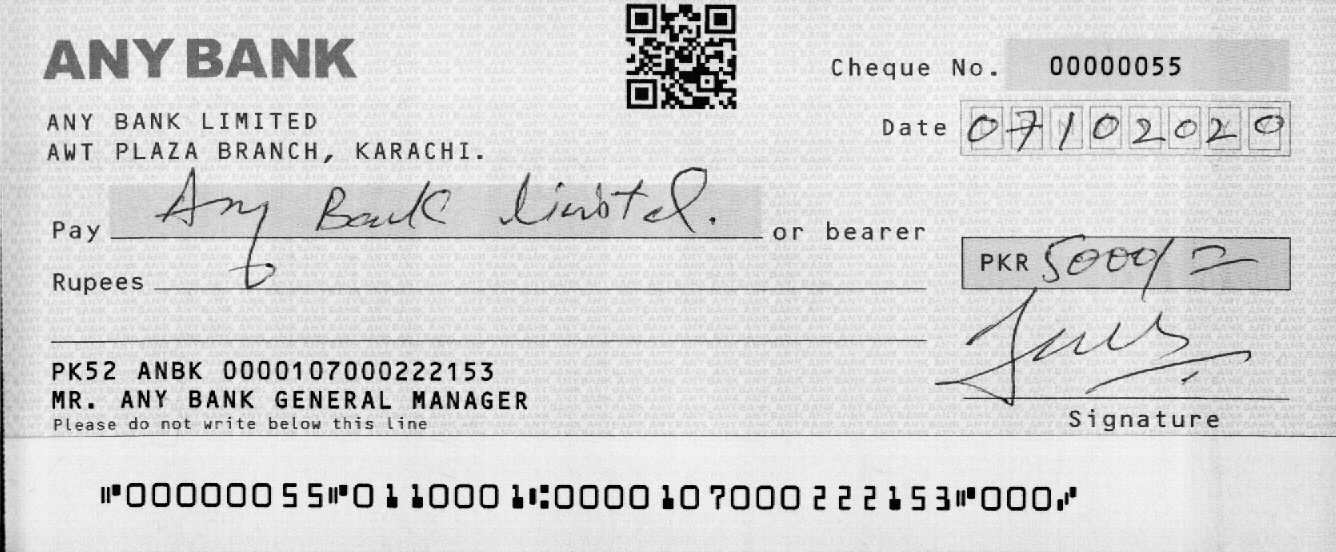 ANY BANK
Cheque No. 00000055
ANY BANK LIMITED
Date 07102020
AWT PLAZA BRANCH, KARACHI.
Pay Any Bank Limited. or bearer
PKR 5000/=
Rupees
PK52 ANBK 0000107000222153
MR. ANY BANK GENERAL MANAGER
Please do not write below this line
Signature
⑈00000055⑈0110001⑆0000107000222153⑈000⑇